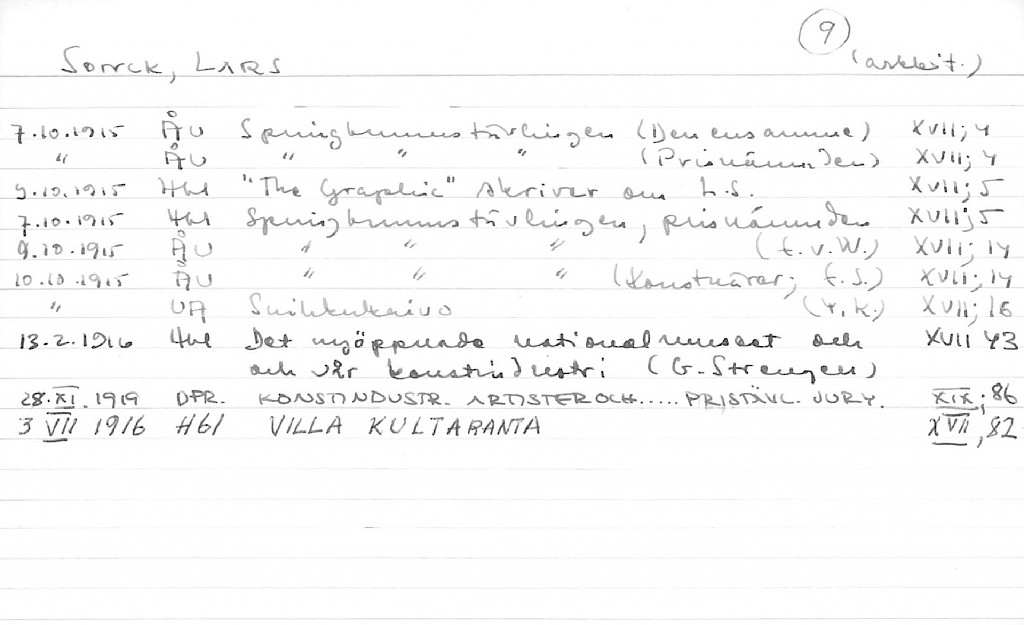 9
Sonck, Lars (arkkit.)
7.10.1915 ÅU Springbrunnstävlingen (Den ensamme) XVII; 4
" ÅU " " " (Prisnämnden) XVII; 4
9.10.1915 Hbl "The Graphic" skriver om L.S. XVII; 5
7.10.1915 Hbl Springbrunnstävlingen, prisnämnden XVII; 5
9.10.1915 ÅU " " " (t.v.W.) XVII; 14
10.10.1915 ÅU " " " (Konstnärer; t.S.) XVII; 14
" UA Suihkukaivo (Y.K.) XVII; 16
13.2.1916 Hbl Det nyöppnade nationalmuseet och
och vår konstindustri (G. Strengell) XVII 43
28.XI.1919 DPR. KONSTINDUSTR. ARTISTER OCH..... PRISTÄVL. JURY. XIX; 86
3 VII 1916 Hbl VILLA KULTARANTA XVII, 82